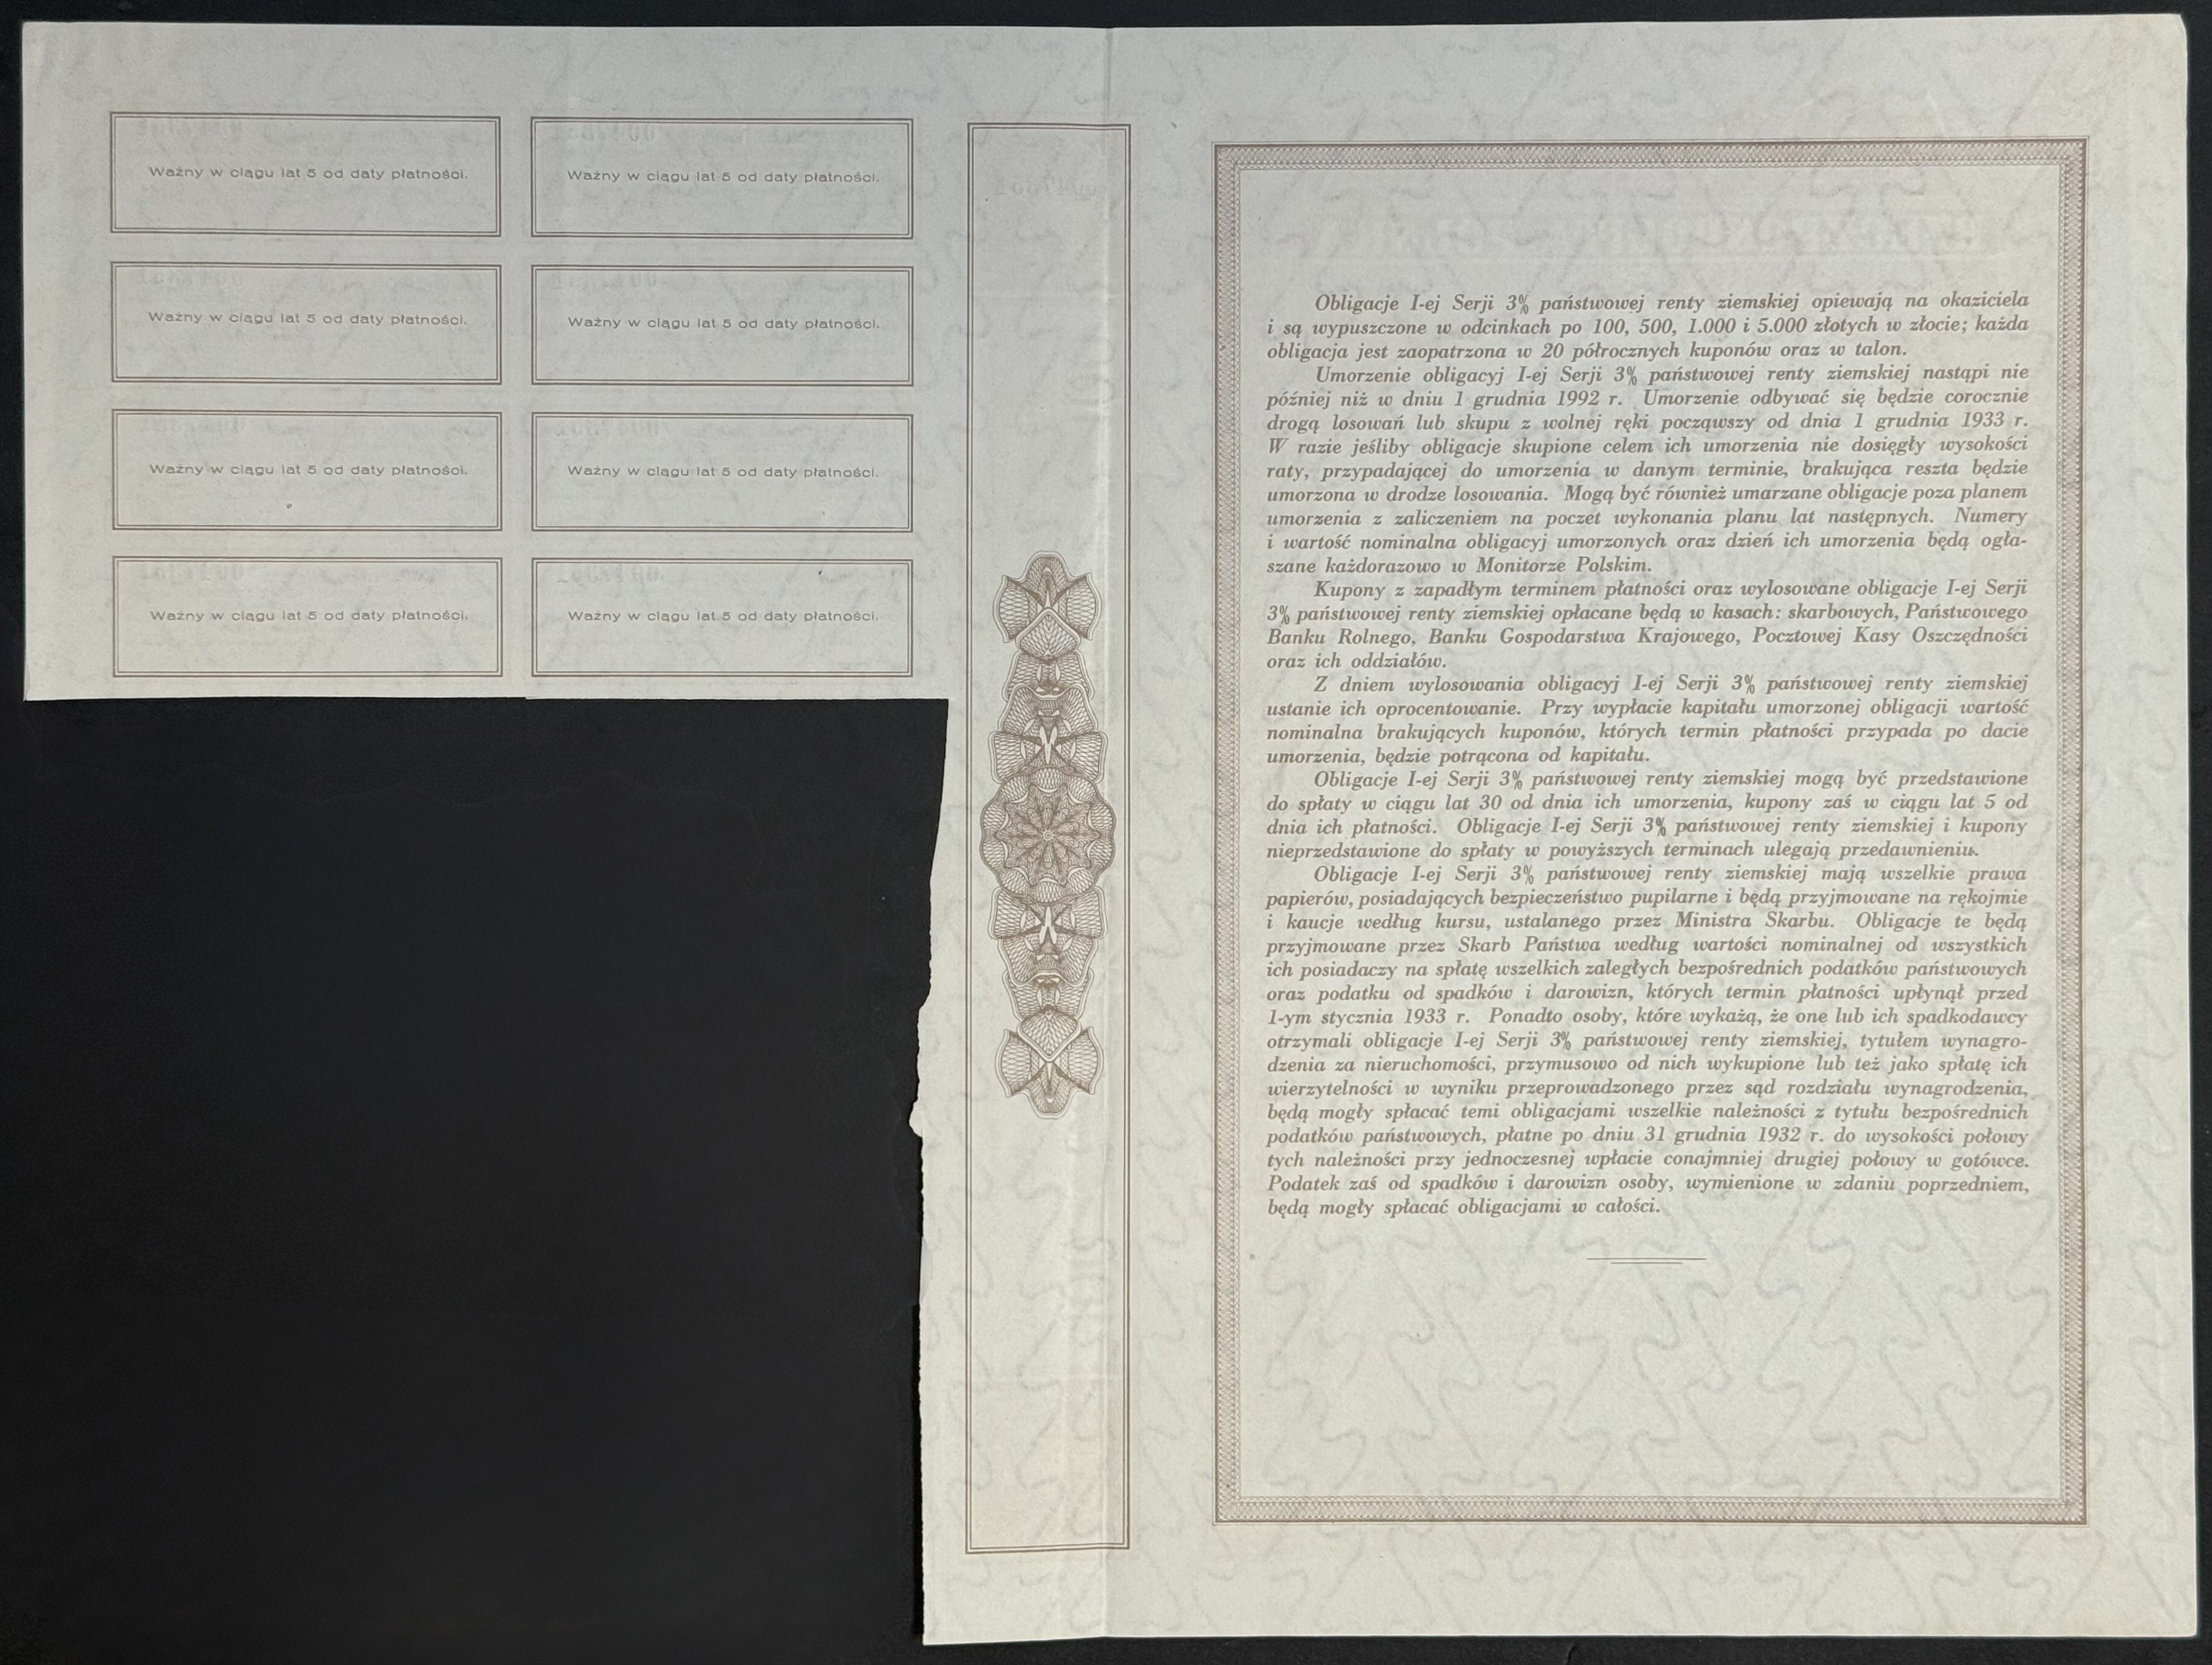 Ważny w ciągu lat 5 od daty płatności.
Ważny w ciągu lat 5 od daty płatności.
Ważny w ciągu lat 5 od daty płatności.
Ważny w ciągu lat 5 od daty płatności.
Ważny w ciągu lat 5 od daty płatności.
Ważny w ciągu lat 5 od daty płatności.
Ważny w ciągu lat 5 od daty płatności.
Ważny w ciągu lat 5 od daty płatności.
Obligacje I-ej Serji 3% państwowej renty ziemskiej opiewają na okaziciela
i są wypuszczone w odcinkach po 100, 500, 1.000 i 5.000 złotych w złocie; każda
obligacja jest zaopatrzona w 20 półrocznych kuponów oraz w talon.
Umorzenie obligacyj I-ej Serji 3% państwowej renty ziemskiej nastąpi nie
później niż w dniu 1 grudnia 1992 r. Umorzenie odbywać się będzie corocznie
drogą losowań lub skupu z wolnej ręki począwszy od dnia 1 grudnia 1933 r.
W razie jeśliby obligacje skupione celem ich umorzenia nie dosięgły wysokości
raty, przypadającej do umorzenia w danym terminie, brakująca reszta będzie
umorzona w drodze losowania. Mogą być również umarzane obligacje poza planem
umorzenia z zaliczeniem na poczet wykonania planu lat następnych. Numery
i wartość nominalna obligacyj umorzonych oraz dzień ich umorzenia będą ogła-
szane każdorazowo w Monitorze Polskim.
Kupony z zapadłym terminem płatności oraz wylosowane obligacje I-ej Serji
3% państwowej renty ziemskiej opłacane będą w kasach: skarbowych, Państwowego
Banku Rolnego, Banku Gospodarstwa Krajowego, Pocztowej Kasy Oszczędności
oraz ich oddziałów.
Z dniem wylosowania obligacyj I-ej Serji 3% państwowej renty ziemskiej
ustanie ich oprocentowanie. Przy wypłacie kapitału umorzonej obligacji wartość
nominalna brakujących kuponów, których termin płatności przypada po dacie
umorzenia, będzie potrącona od kapitału.
Obligacje I-ej Serji 3% państwowej renty ziemskiej mogą być przedstawione
do spłaty w ciągu lat 30 od dnia ich umorzenia, kupony zaś w ciągu lat 5 od
dnia ich płatności. Obligacje I-ej Serji 3% państwowej renty ziemskiej i kupony
nieprzedstawione do spłaty w powyższych terminach ulegają przedawnieniu.
Obligacje I-ej Serji 3% państwowej renty ziemskiej mają wszelkie prawa
papierów, posiadających bezpieczeństwo pupilarne i będą przyjmowane na rękojmie
i kaucje według kursu, ustalanego przez Ministra Skarbu. Obligacje te będą
przyjmowane przez Skarb Państwa według wartości nominalnej od wszystkich
ich posiadaczy na spłatę wszelkich zaległych bezpośrednich podatków państwowych
oraz podatku od spadków i darowizn, których termin płatności upłynął przed
1-ym stycznia 1933 r. Ponadto osoby, które wykażą, że one lub ich spadkodawcy
otrzymali obligacje I-ej Serji 3% państwowej renty ziemskiej, tytułem wynagro-
dzenia za nieruchomości, przymusowo od nich wykupione lub też jako spłatę ich
wierzytelności w wyniku przeprowadzonego przez sąd rozdziału wynagrodzenia,
będą mogły spłacać temi obligacjami wszelkie należności z tytułu bezpośrednich
podatków państwowych, płatne po dniu 31 grudnia 1932 r. do wysokości połowy
tych należności przy jednoczesnej wpłacie conajmniej drugiej połowy w gotówce.
Podatek zaś od spadków i darowizn osoby, wymienione w zdaniu poprzedniem,
będą mogły spłacać obligacjami w całości.